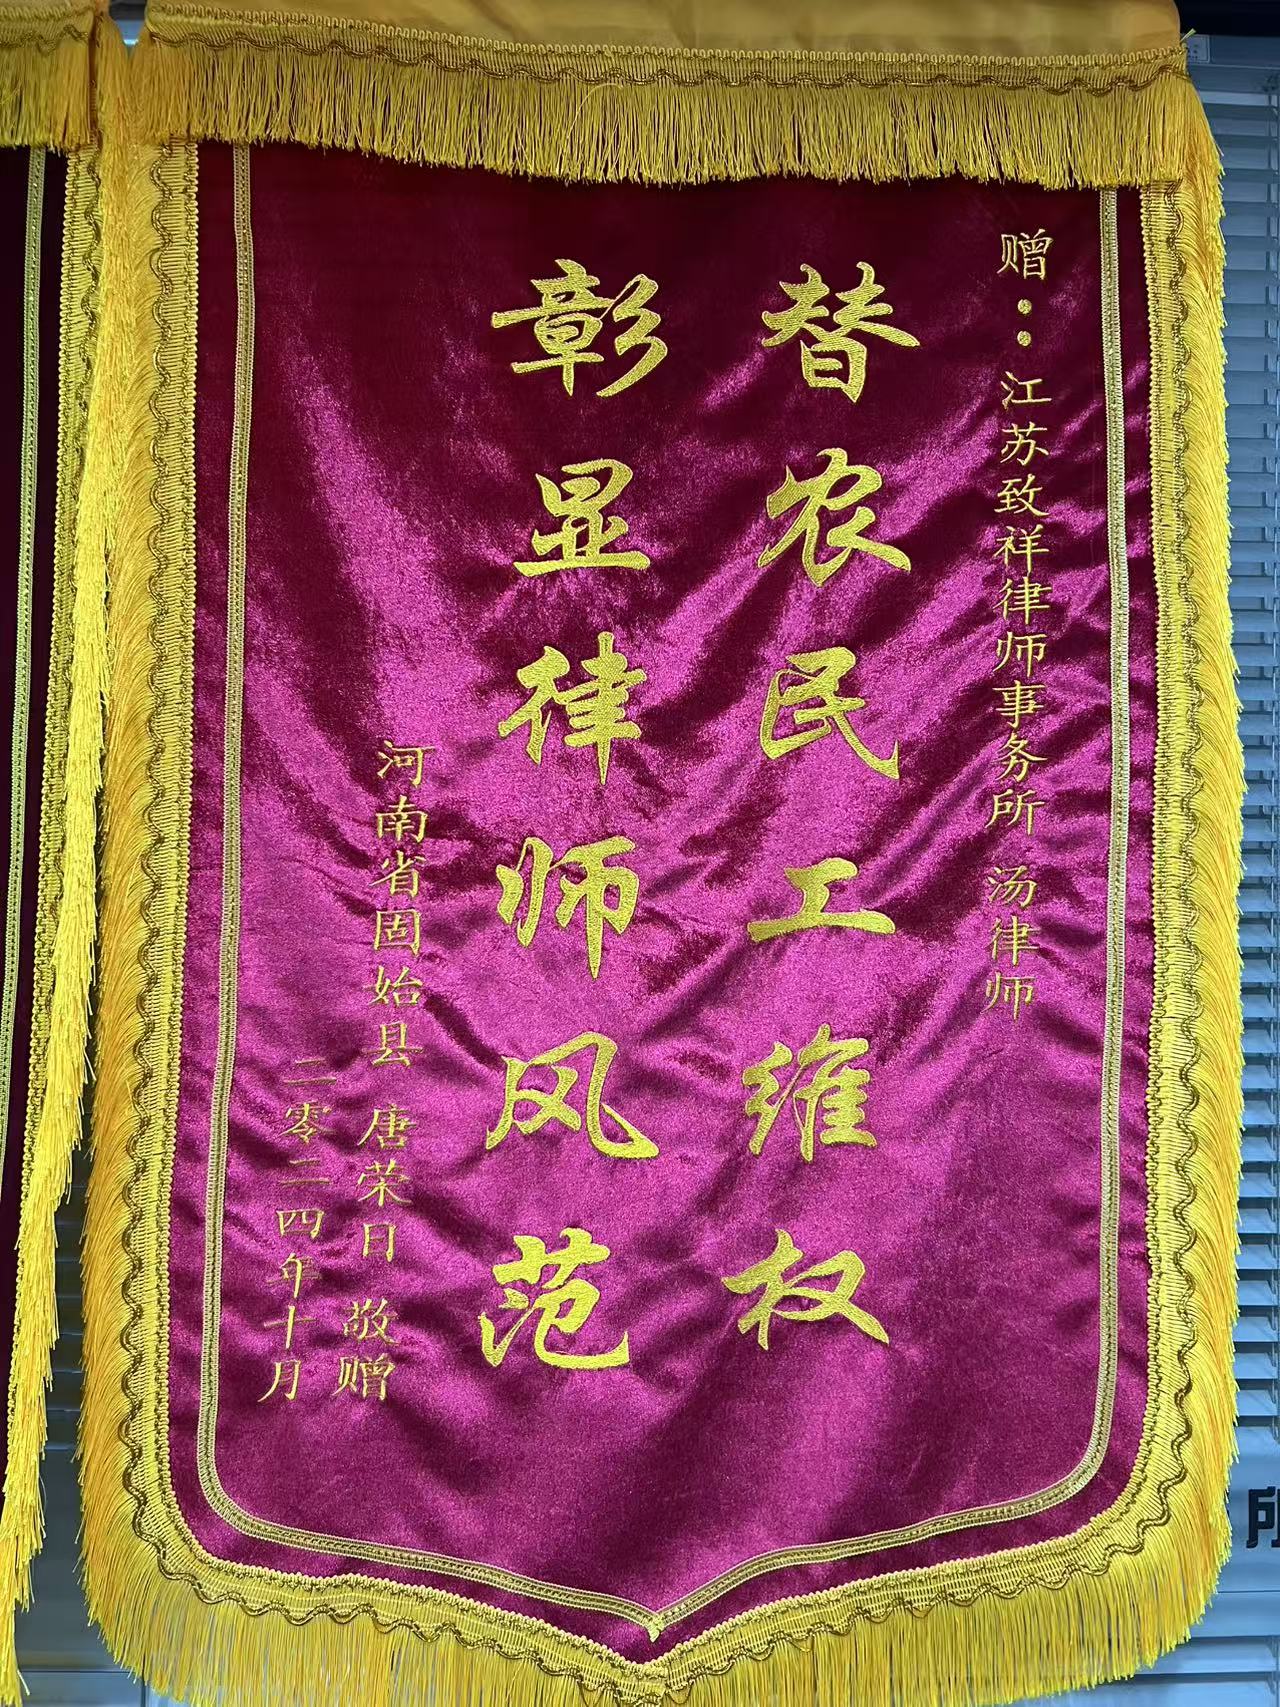 赠：江苏致祥律师事务所 汤律师
替农民工维权
彰显律师风范
河南省固始县 唐荣日 敬赠
二零二四年十月
所